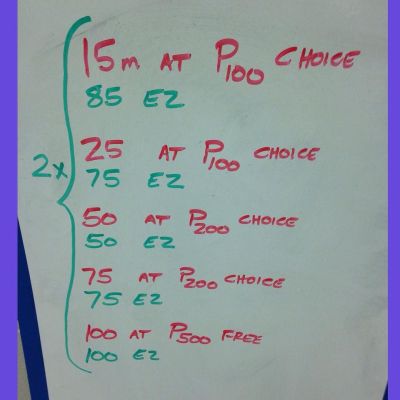 15m AT P100 CHOICE
85 EZ
2x
25 AT P100 CHOICE
75 EZ
50 AT P200 CHOICE
50 EZ
75 AT P200 CHOICE
75 EZ
100 AT P500 FREE
100 EZ